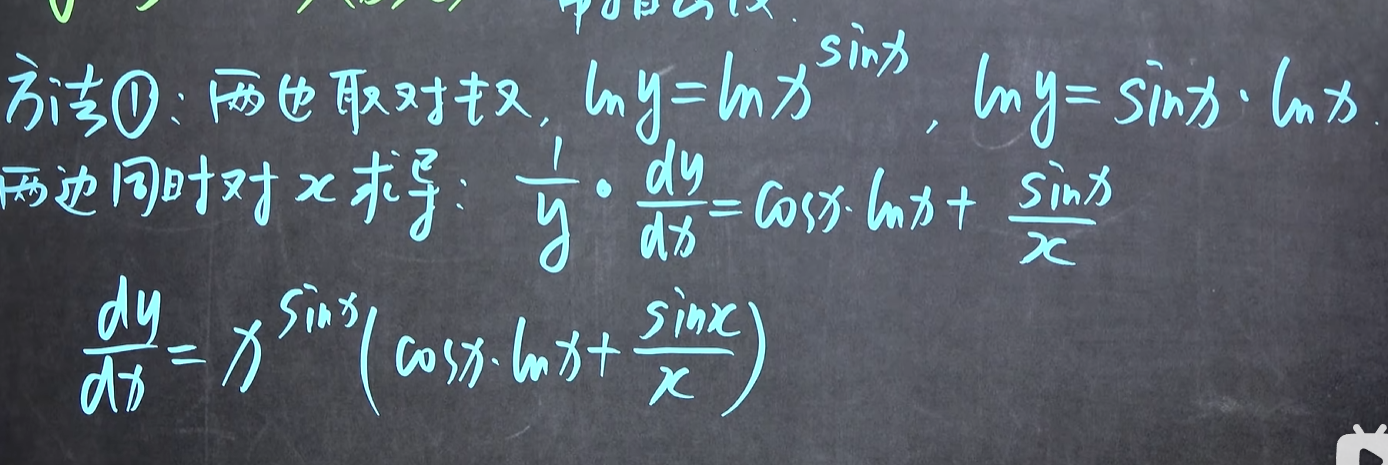 方法①: 两边取对数, ln y = ln x^{sin x}, ln y = sin x · ln x.
两边同时对 x 求导: \frac{1}{y} · \frac{dy}{dx} = cos x · ln x + \frac{sin x}{x}
\frac{dy}{dx} = x^{sin x} ( cos x · ln x + \frac{sin x}{x} )